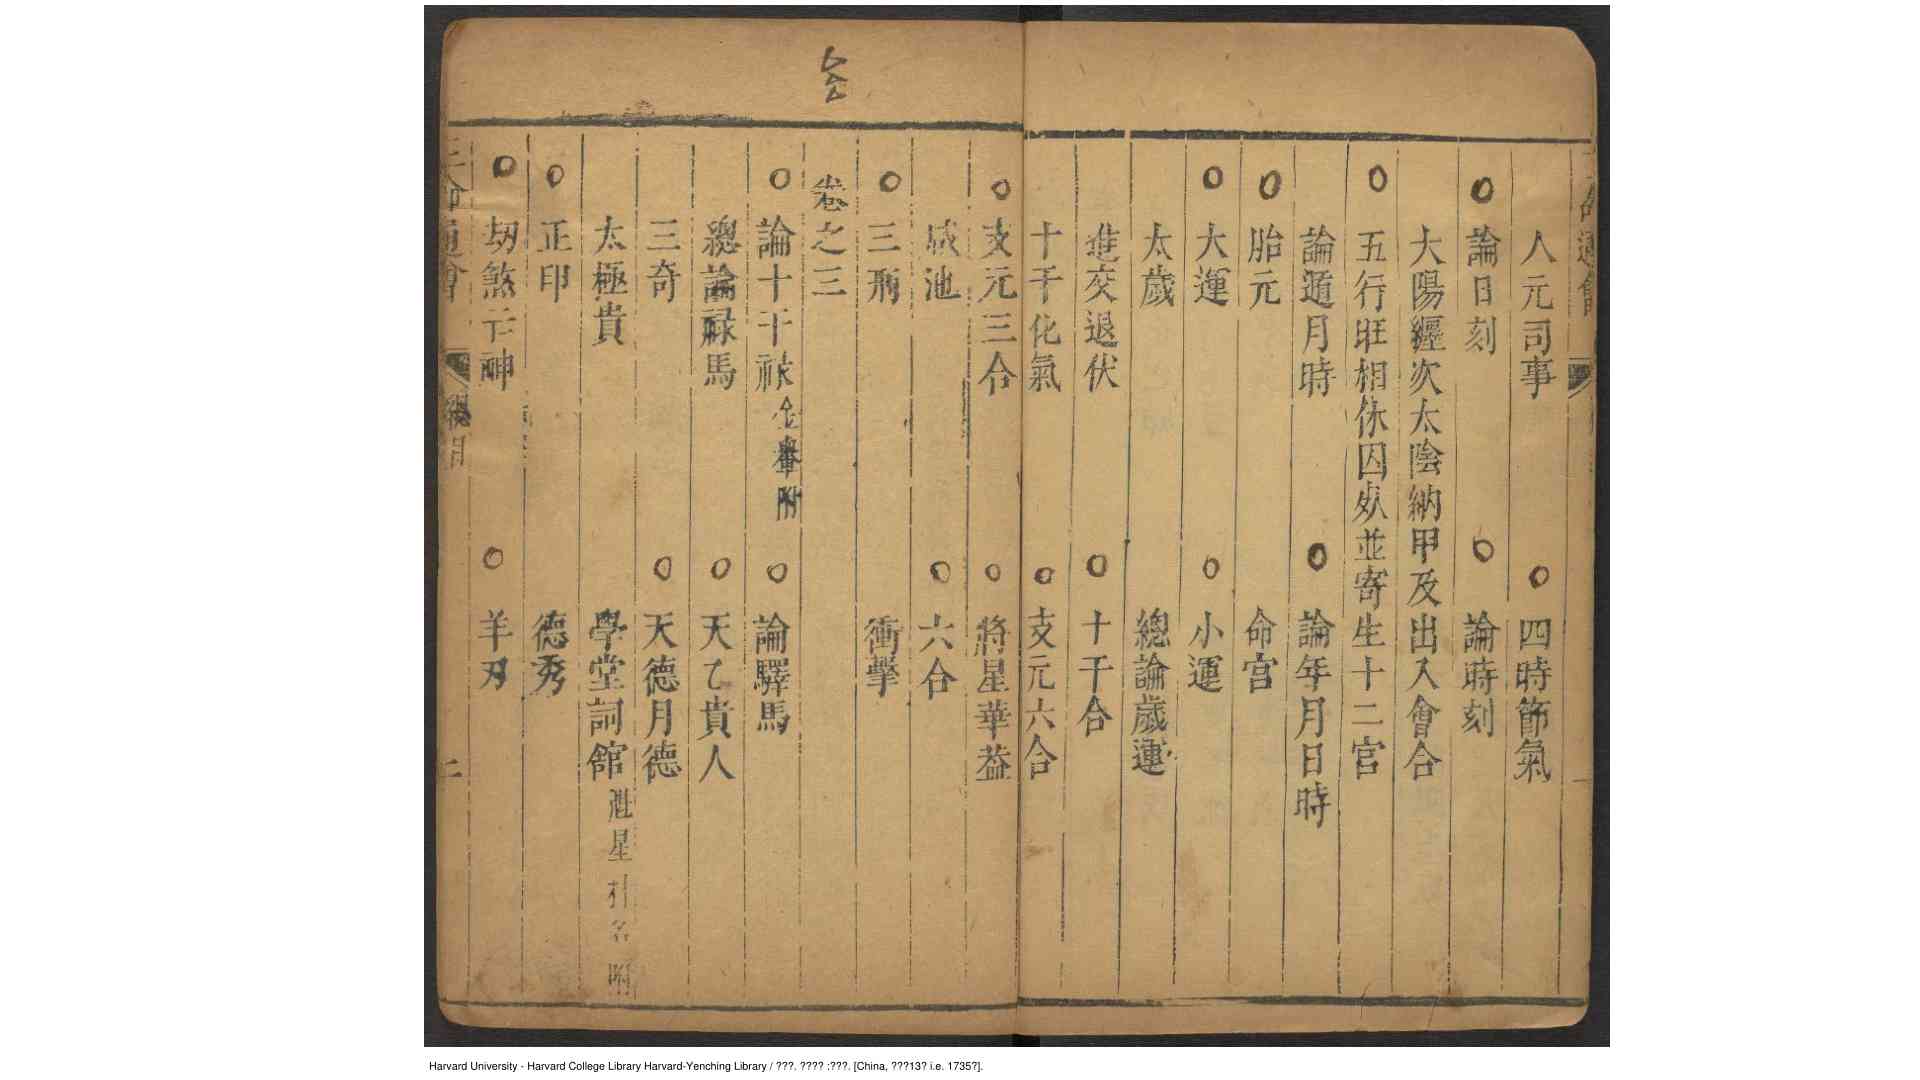 人元司事 四時節氣
論日刻 論時刻
大陽纏次太陰納甲及出入會合
五行旺相休囚死並寄生十二宮
論遁月時 論年月日時
胎元 命宮
大運 小運
太歲 總論歲運
進交退伏 十干合
十干化氣 支元六合
支元三合 將星華葢
咸池 六合
三刑 衝擊
卷之三
論十干祿 金轝附 論驛馬
總論祿馬 天乙貴人
三奇 天德月德
太極貴 學堂詞館 魁星 名附
正印 德秀
劫煞 神 羊刃
三命通會 總目 二
Harvard University - Harvard College Library Harvard-Yenching Library / ???. ???? ;???. [China, ???13? i.e. 1735?].